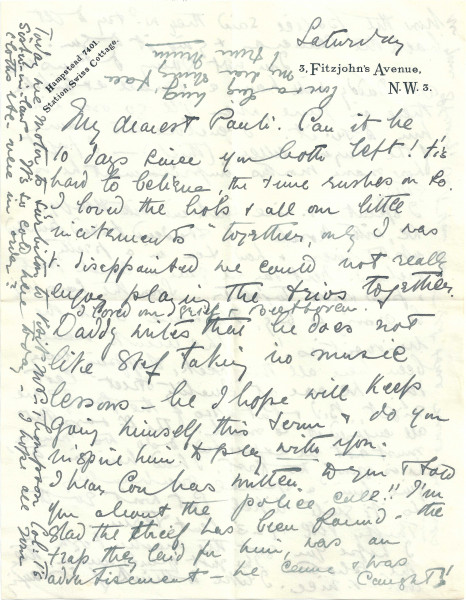 Saturday
Hampstead 7401.
Station, Swiss Cottage.
3, Fitzjohn's Avenue,
N.W. 3.
My dearest Pauli. Can it be
10 days since you both left! 'tis
hard to believe, the time rushes on so.
I loved the hols & all our little
incitements" together, only I was
disappointed we could not really
enjoy playing the trios together.
I loved our Grieg - Beethoven.
Daddy writes that he does not
like Stef taking no music
lessons - he I hope will keep
going himself this term & do you
inspire him to play with you.
I hear Con has written to you & told
you about the police call!! I'm
glad the thief has been found - the
trap they laid for him, was an
advertisement - he came & was
caught!
Today we motor to Surbiton to visit Mrs Thompson Col: T's
Sister-in-law - It's so cold here today - I hope all your
clothes etc. were in order?